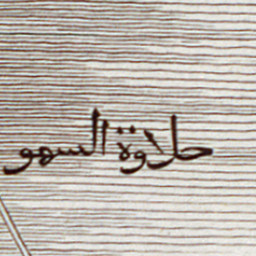 حلاوة السهو